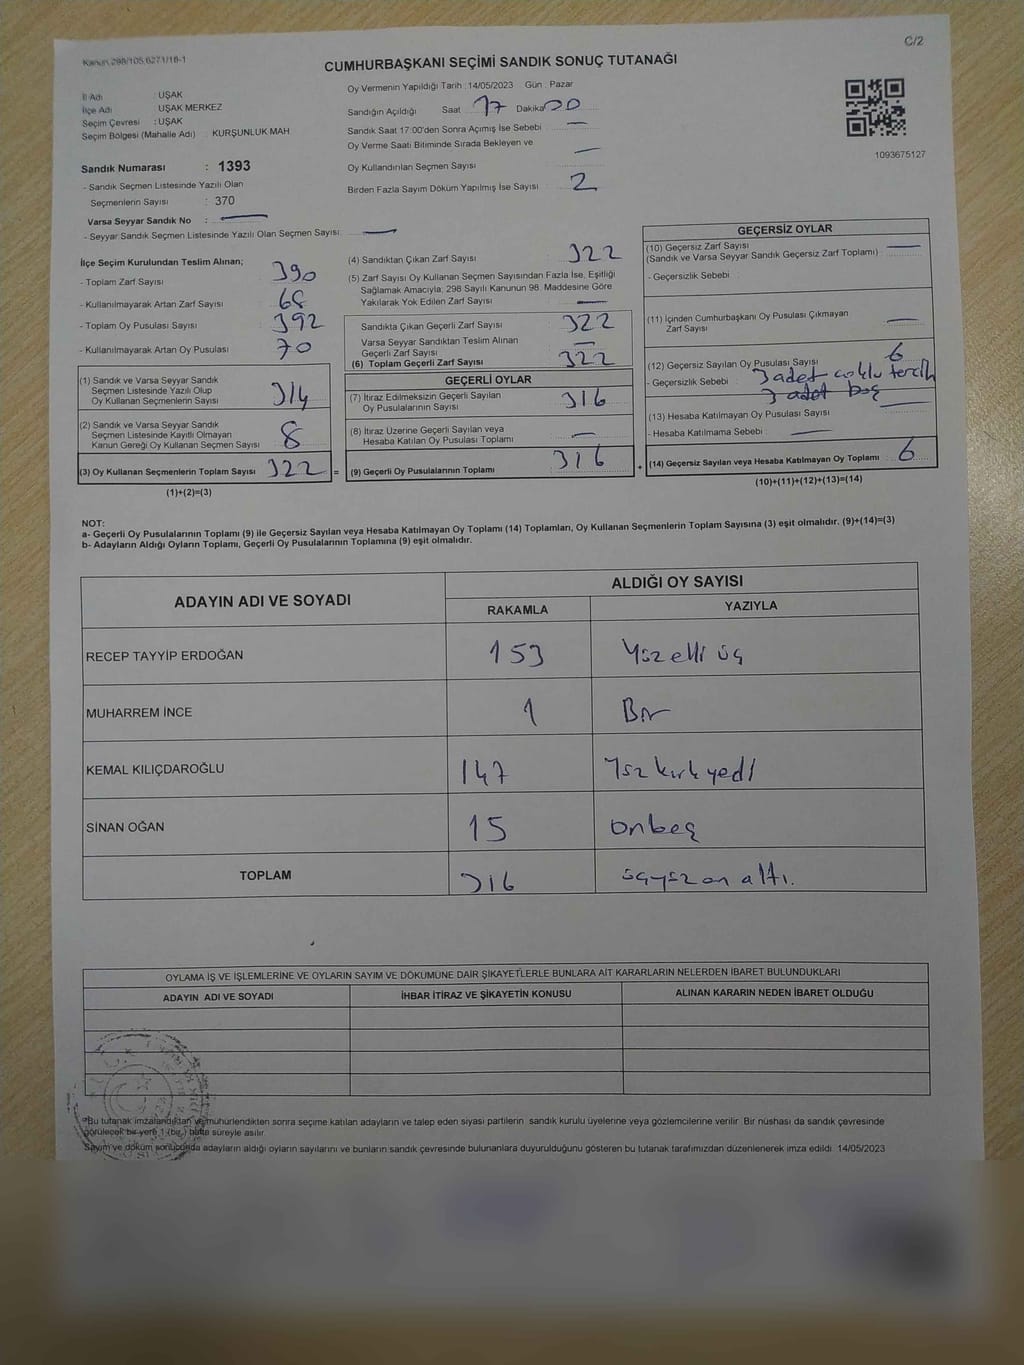 C/2
Kanun 298/105,6271/16-1
CUMHURBAŞKANI SEÇİMİ SANDIK SONUÇ TUTANAĞI
İl Adı : UŞAK
İlçe Adı : UŞAK MERKEZ
Seçim Çevresi : UŞAK
Seçim Bölgesi (Mahalle Adı) : KURŞUNLUK MAH
Sandık Numarası : 1393
- Sandık Seçmen Listesinde Yazılı Olan
Seçmenlerin Sayısı : 370
Varsa Seyyar Sandık No :
- Seyyar Sandık Seçmen Listesinde Yazılı Olan Seçmen Sayısı:
Oy Vermenin Yapıldığı Tarih : 14/05/2023 Gün : Pazar
Sandığın Açıldığı Saat 17 Dakika 00
Sandık Saat 17:00'den Sonra Açımış İse Sebebi
Oy Verme Saati Bitiminde Sırada Bekleyen ve
Oy Kullandırılan Seçmen Sayısı
Birden Fazla Sayım Döküm Yapılmış İse Sayısı 2
1093675127
İlçe Seçim Kurulundan Teslim Alınan;
- Toplam Zarf Sayısı : 390
- Kullanılmayarak Artan Zarf Sayısı : 68
- Toplam Oy Pusulası Sayısı : 392
- Kullanılmayarak Artan Oy Pusulası : 70
(1) Sandık ve Varsa Seyyar Sandık
Seçmen Listesinde Yazılı Olup
Oy Kullanan Seçmenlerin Sayısı 314
(2) Sandık ve Varsa Seyyar Sandık
Seçmen Listesinde Kayıtlı Olmayan
Kanun Gereği Oy Kullanan Seçmen Sayısı 8
(3) Oy Kullanan Seçmenlerin Toplam Sayısı 322 =
(1)+(2)=(3)
(4) Sandıktan Çıkan Zarf Sayısı 322
(5) Zarf Sayısı Oy Kullanan Seçmen Sayısından Fazla İse, Eşitliği
Sağlamak Amacıyla; 298 Sayılı Kanunun 98. Maddesine Göre
Yakılarak Yok Edilen Zarf Sayısı
Sandıkta Çıkan Geçerli Zarf Sayısı 322
Varsa Seyyar Sandıktan Teslim Alınan
Geçerli Zarf Sayısı
(6) Toplam Geçerli Zarf Sayısı 322
GEÇERLİ OYLAR
(7) İtiraz Edilmeksizin Geçerli Sayılan
Oy Pusulalarının Sayısı 316
(8) İtiraz Üzerine Geçerli Sayılan veya
Hesaba Katılan Oy Pusulası Toplamı
(9) Geçerli Oy Pusulalarının Toplamı 316 +
GEÇERSİZ OYLAR
(10) Geçersiz Zarf Sayısı
(Sandık ve Varsa Seyyar Sandık Geçersiz Zarf Toplamı)
- Geçersizlik Sebebi
(11) İçinden Cumhurbaşkanı Oy Pusulası Çıkmayan
Zarf Sayısı
(12) Geçersiz Sayılan Oy Pusulası Sayısı 6
- Geçersizlik Sebebi : 3 adet çoklu tercih
3 adet boş
(13) Hesaba Katılmayan Oy Pusulası Sayısı
- Hesaba Katılmama Sebebi :
(14) Geçersiz Sayılan veya Hesaba Katılmayan Oy Toplamı 6
(10)+(11)+(12)+(13)=(14)
NOT:
a- Geçerli Oy Pusulalarının Toplamı (9) ile Geçersiz Sayılan veya Hesaba Katılmayan Oy Toplamı (14) Toplamları, Oy Kullanan Seçmenlerin Toplam Sayısına (3) eşit olmalıdır. (9)+(14)=(3)
b- Adayların Aldığı Oyların Toplamı, Geçerli Oy Pusulalarının Toplamına (9) eşit olmalıdır.
ADAYIN ADI VE SOYADI ALDIĞI OY SAYISI
RAKAMLA YAZIYLA
RECEP TAYYİP ERDOĞAN 153 Yüzelli üç
MUHARREM İNCE 1 Bir
KEMAL KILIÇDAROĞLU 147 Yüz kırk yedi
SİNAN OĞAN 15 onbeş
TOPLAM 316 üçyüz on altı.
OYLAMA İŞ VE İŞLEMLERİNE VE OYLARIN SAYIM VE DÖKÜMÜNE DAİR ŞİKAYETLERLE BUNLARA AİT KARARLARIN NELERDEN İBARET BULUNDUKLARI
ADAYIN ADI VE SOYADI İHBAR İTİRAZ VE ŞİKAYETİN KONUSU ALINAN KARARIN NEDEN İBARET OLDUĞU
Bu tutanak imzalandıktan ve mühürlendikten sonra seçime katılan adayların ve talep eden siyasi partilerin sandık kurulu üyelerine veya gözlemcilerine verilir Bir nüshası da sandık çevresinde
görülecek bir yere 1 (bir) hafta süreyle asılır
Sayım ve döküm sonucunda adayların aldığı oyların sayılarını ve bunların sandık çevresinde bulunanlara duyurulduğunu gösteren bu tutanak tarafımızdan düzenlenerek imza edildi 14/05/2023